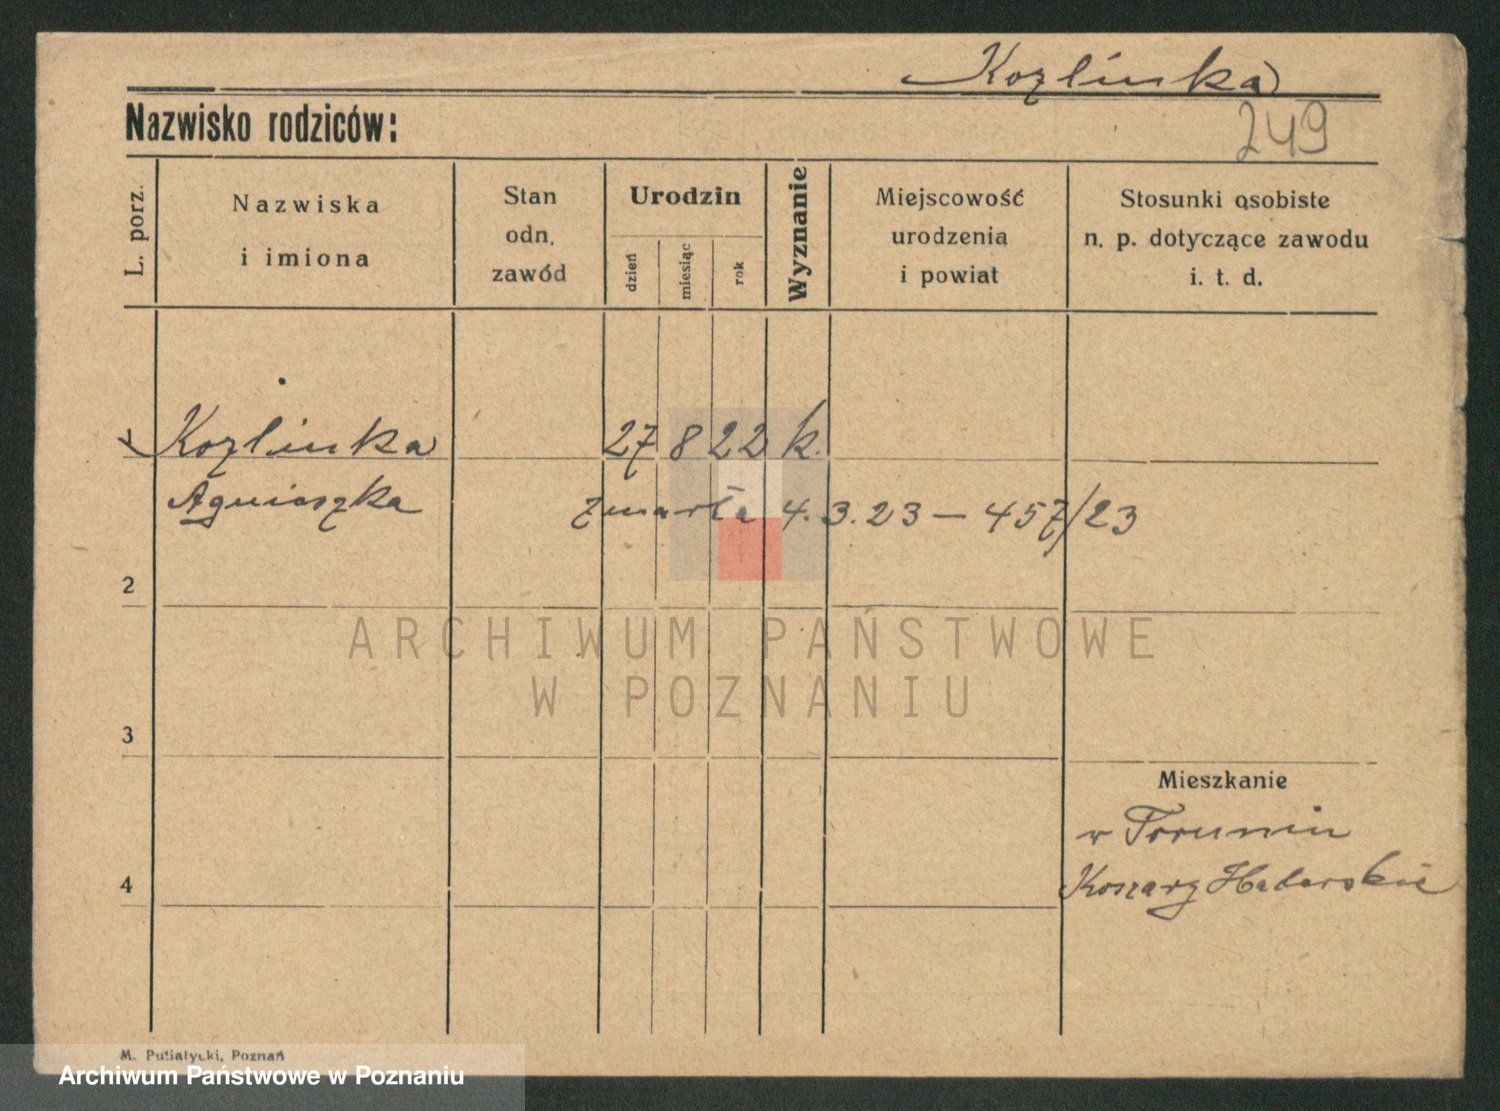 Kozlinka
Nazwisko rodziców:
249
L. porz.
Nazwiska
i imiona
Stan
odn.
zawód
Urodzin
dzień
miesiąc
rok
Wyznanie
Miejscowość
urodzenia
i powiat
Stosunki osobiste
n. p. dotyczące zawodu
i. t. d.
1 Kozlinka 27 8 22 k.
Agnieszka zmarła 4.3.23 — 457/23
2
ARCHIWUM PAŃSTWOWE
W POZNANIU
3
Mieszkanie
w Toruniu
4
Koszary
M. Putiatycki, Poznań
Archiwum Państwowe w Poznaniu